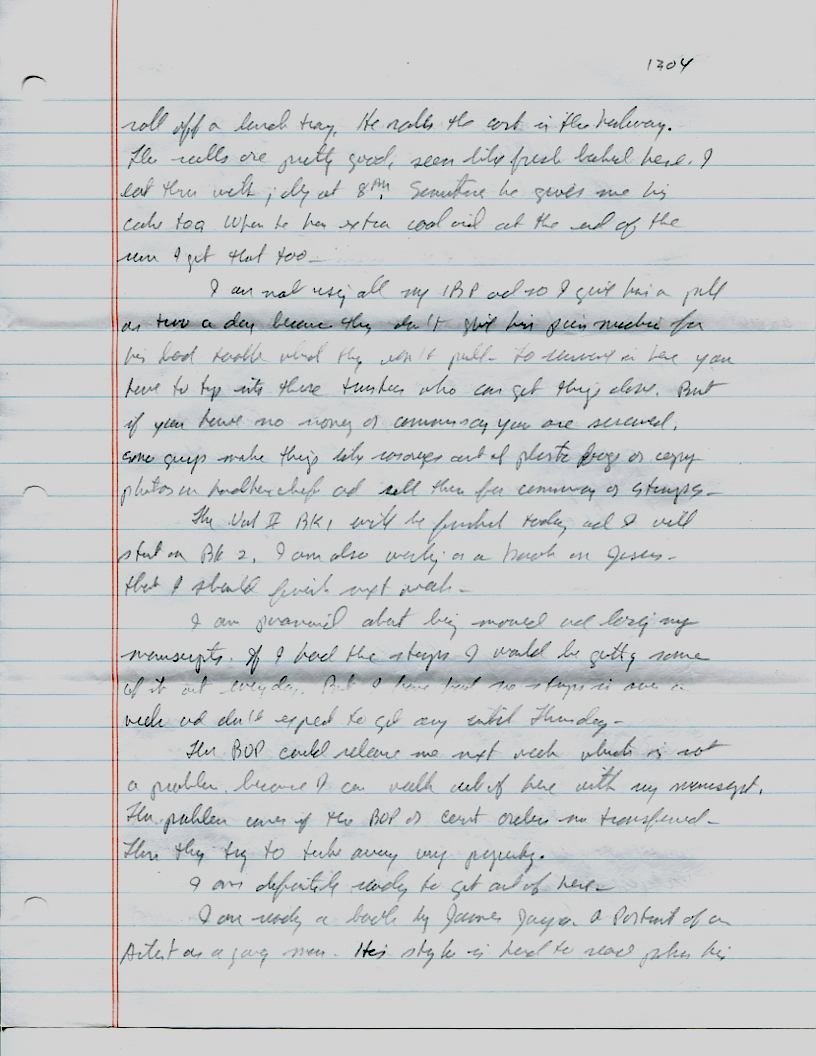 1304
roll off a lunch tray. He rolls the cart in the hallway.
The rolls are pretty good, seem like fresh baked here. I
eat this with jelly at 8 PM. Sometime he gives me his
cake too. When he has extra cool aid at the end of the
run I get that too -
I am not using all my IBP and so I give him a pill
or two a day because they don't give him pain medicine for
his bad tooth which they won't pull - to survive in here you
have to tap into these trustees who can get things done. But
if you have no money or commissary you are screwed.
some guys make things like rosaries out of plastic bags or copy
photos on handkerchief and sell them for commissary or stamps -
The Vol II BK 1 will be finished today and I will
start on BK 2. I am also working on a book on Jesus -
that I should finish next week -
I am paranoid about being moved and losing my
manuscripts. If I had the stamps I would be getting some
of it out everyday. But I have had no stamps in over a
week and don't expect to get any until Thursday -
The BOP could release me next week which is not
a problem, because I can walk out of here with my manuscript.
The problem comes if the BOP or court orders me transferred -
Then they try to take away my property.
I am definitely ready to get out of here -
I am reading a book by James Joyce. A Portrait of an
Artist as a young man. His style is hard to read plus his